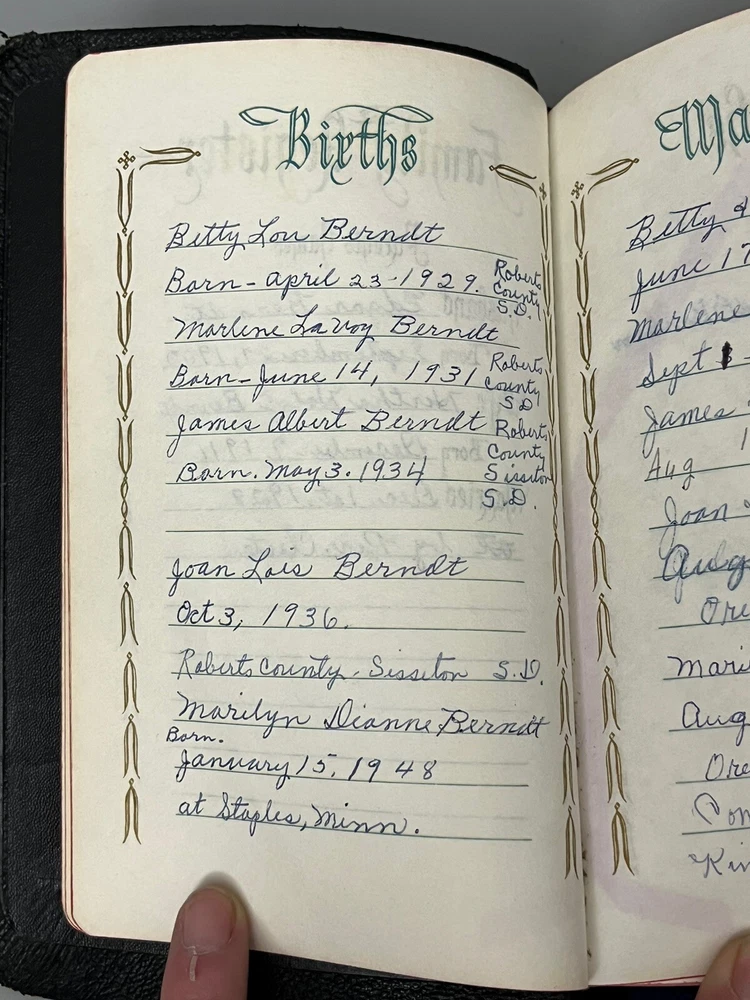 Births
Betty Lou Berndt
Born - April 23 - 1929. Roberts
County
S.D.
Marlene LaVoy Berndt
Born - June 14, 1931 Roberts
County
S D
James Albert Berndt Roberts
County
Born. May 3. 1934 Sisseton
S.D.
Joan Lois Berndt
Oct 3, 1936.
Roberts County. Sisseton S.D.
Marilyn Dianne Berndt
Born.
January 15, 1948
at Staples, Minn.
Ma
Betty &
June 17
Marlene
Sept
James
Aug 1
Joan
Aug
Ore
Mari
Aug
Ore
Com
Kin